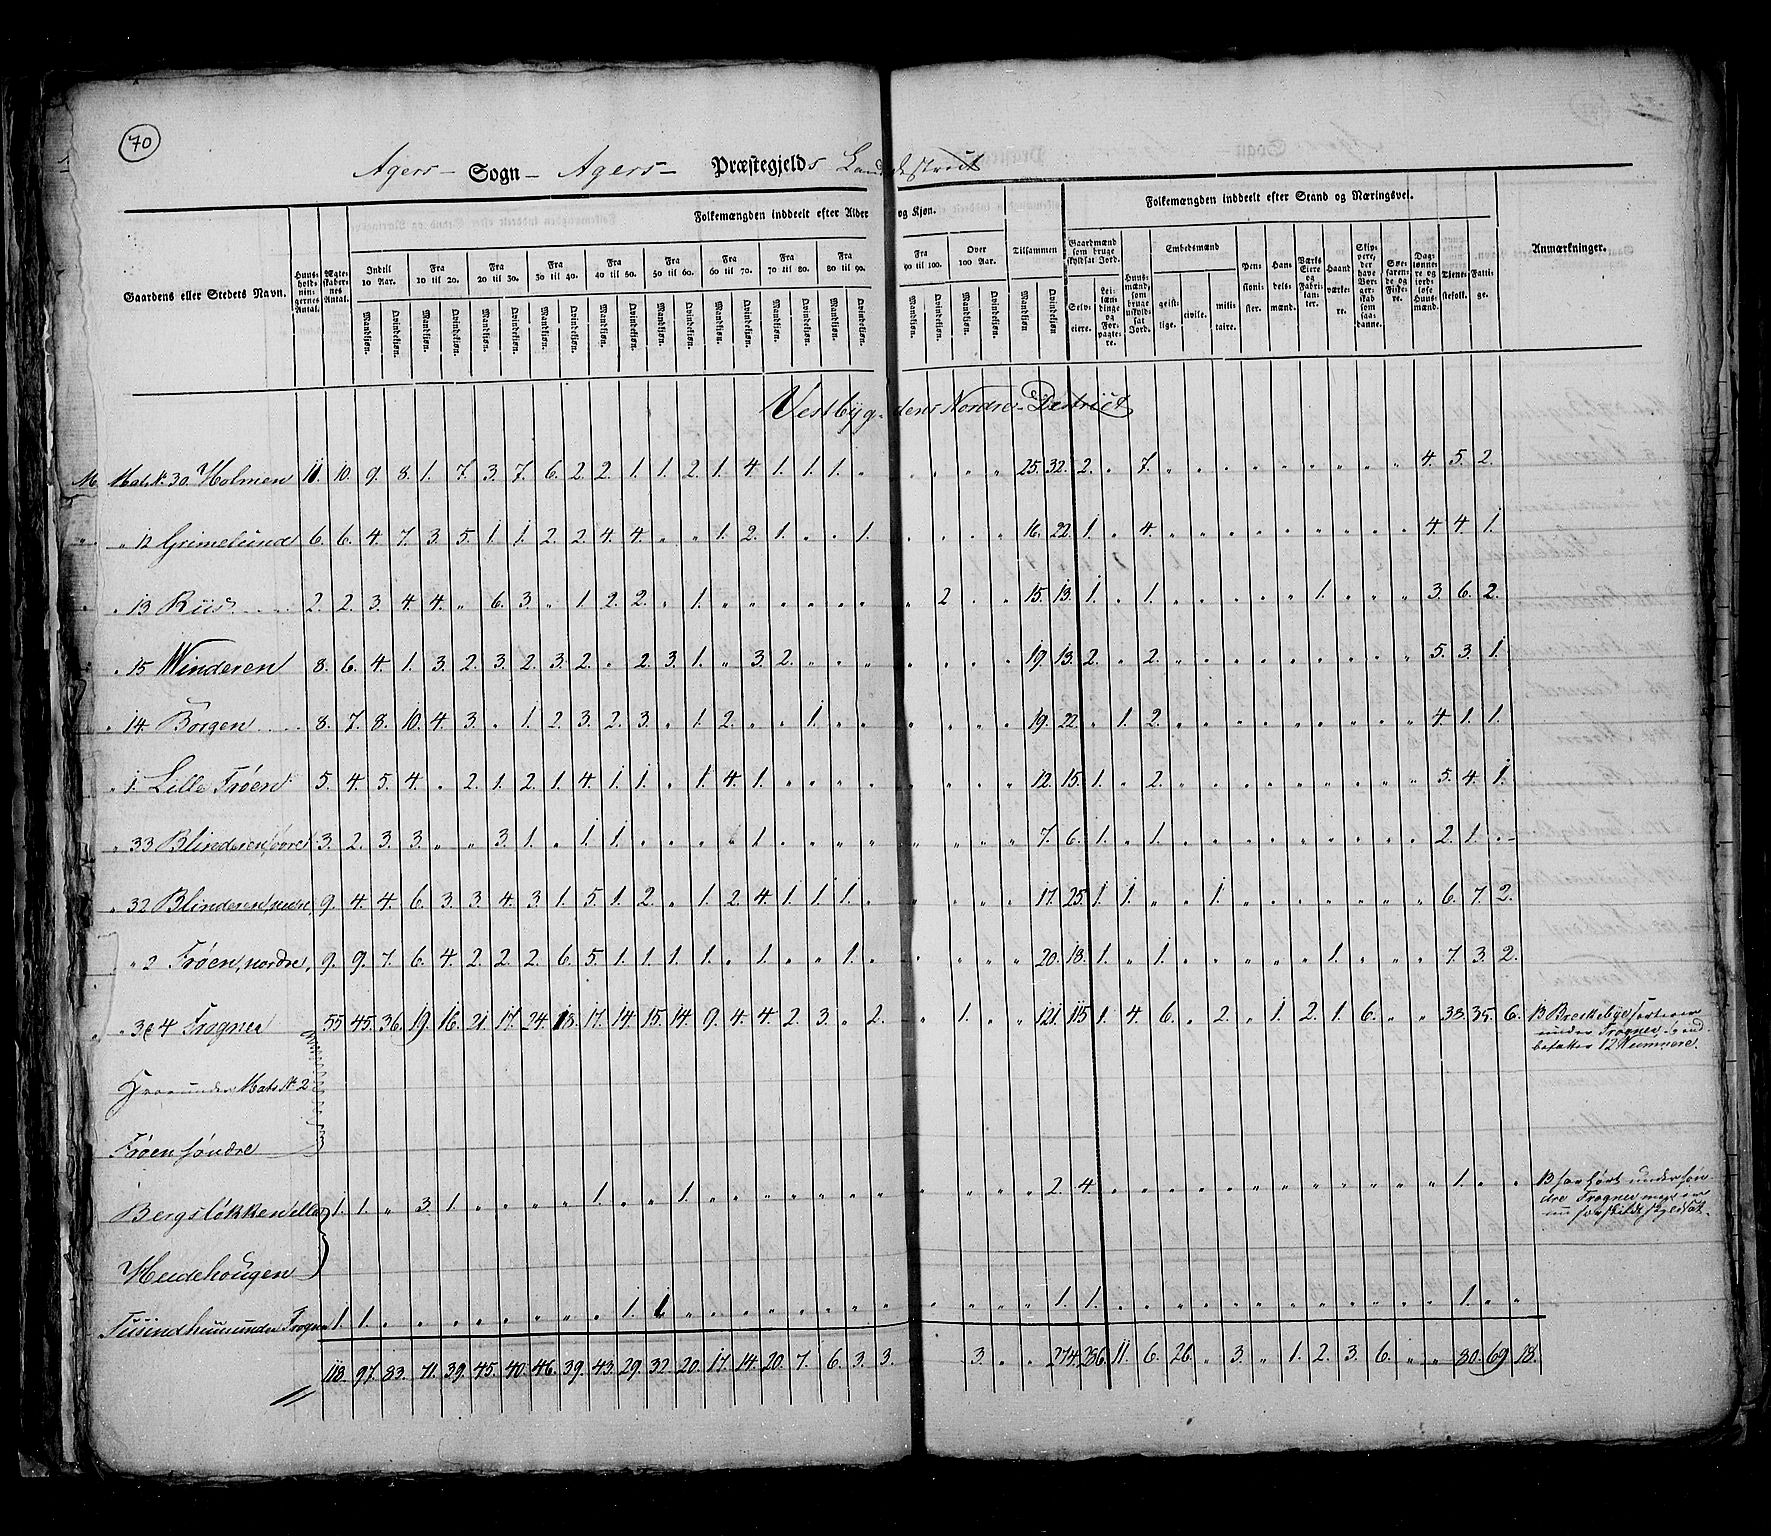 70
Agers Sogn Agers Præstegjelds Landdestrict
Folkemængden inddeelt efter Alder og Kjøn.
Folkemængden inddeelt efter Stand og Næringsvei.
Gaardens eller Stedets Navn.
Huusholdningernes Antal.
Ægteskabernes Antal.
Indtil 10 Aar.
Fra 10 til 20.
Fra 20 til 30.
Fra 30 til 40.
Fra 40 til 50.
Fra 50 til 60.
Fra 60 til 70.
Fra 70 til 80.
Fra 80 til 90.
Fra 90 til 100.
Over 100 Aar.
Tilsammen
Mandkjøn. Qvindekjøn.
Gaardmænd som bruge skyldsat Jord.
Selveiere.
Leilændinge og Forpagtere.
Huusmænd, som bruge uskyldsat Jord.
Embedsmænd
geistlige.
civile.
militaire.
Pensionister.
Handelsmænd.
Værks Eiere og Fabrikanter.
Haandværkere.
Skippere, der have Borgerskab som saadanne.
Søefarende og Fiskere.
Dagslønnere og jordløse Huusmænd.
Tienestefolk.
Fattige.
Anmærkninger.
Vestbygdens Nordre District
Mats N. 30 Holmen 11. 10. 9. 8. 1. 7. 3. 7. 6. 2. 2. 1. 1. 2. 1. 4. 1. 1. 1. " " " " " 25. 32. 2. " 7. " " " " " " " " " " 4. 5. 2.
" 12 Grimelund 6. 6. 4. 7. 3. 5. 1. 1. 2. 2. 4. 4. " " 1. 2. 1. " " 1. " " " " 16. 22. 1. " 4. " " " " " " " " " " 4. 4. 1.
" 13 Riis 2. 2. 3. 4. 4. " 6. 3. " 1. 2. 2. " 1. " " " " " " " 2. " " 15. 13. 1. " 1. " " " " " " 1. " " " 3. 6. 2.
" 15 Winderen 8. 6. 4. 1. 3. 2. 3. 2. 3. 2. " 2. 3. 1. " 3. 2. " " " " " " " 19. 13. 2. " 2. " " " " " " " " " " 5. 3. 1.
" 14. Borgen 8. 7. 8. 10. 4. 3. " 1. 2. 3. 2. 3. " 1. 2. " " 1. " " " " " " 19. 22. " 1. 2. " " " " " " " " " " 4. 1. 1.
" 1. Lille Frøen 5. 4. 5. 4. " 2. 1. 2. 1. 4. 1. 1. " 1. 4. 1. " " " " " " " " 12. 15. 1. " 2. " " " " " " " " " " 5. 4. 1.
" 33 Blinderen, øvre 3. 2. 3. 3. " " 3. 1. " 1. 1. " " " " 1. " " " " " " " " 7. 6. 1. " 1. " " " " " " " " " " 2. 1. "
" 32 Blinderen, nedre, 9. 4. 4. 6. 3. 3. 4. 3. 1. 5. 1. 2. " 1. 2. 4. 1. 1. 1. " " " " " 17. 25. 1. 1. " " 1. " " " " " " " " 6. 7. 2.
" 2 Frøen, nordre, 9. 9. 7. 6. 4. 2. 2. 2. 6. 5. 1. 1. 1. 1. " 1. " " 1. " " " " " 20. 18. 1. " 1. " " " " " " 1. " " " 7. 3. 2.
" 3 & 4 Frogner 55 45. 36. 19. 16. 21. 17. 24. 18. 17. 14. 15. 14. 9. 4. 4. 2. 3. " 2. " 1. " " 121. 115. 1. 4. 6. " 2. " 1. 2. 1. 6. " " 38. 35. 6.
under Mats N. 2
Frøen søndre
Bergsløkken eller 1. 1. " 3. 1. " " " " 1. " " 1. " " " " " " " " " " " 2. 4. " " " " " " " " " " " " " " 1. " "
Heidehougen
under Frogner 1. 1. " " " " " " " " 1. 1. " " " " " " " " " " " " 1. 1. " " " " " " " " " " " " " " 1. " "
118. 97. 83. 71. 39. 45. 40. 46. 39. 43. 29. 32. 20. 17. 14. 20. 7. 6. 3. 3. 3. " " 274. 286. 11. 6. 26. " 3. " 1. 2. 3. 6. " " 80. 69 18.
under Frogner
12 Numere.
under søn-
dre Frogner men er